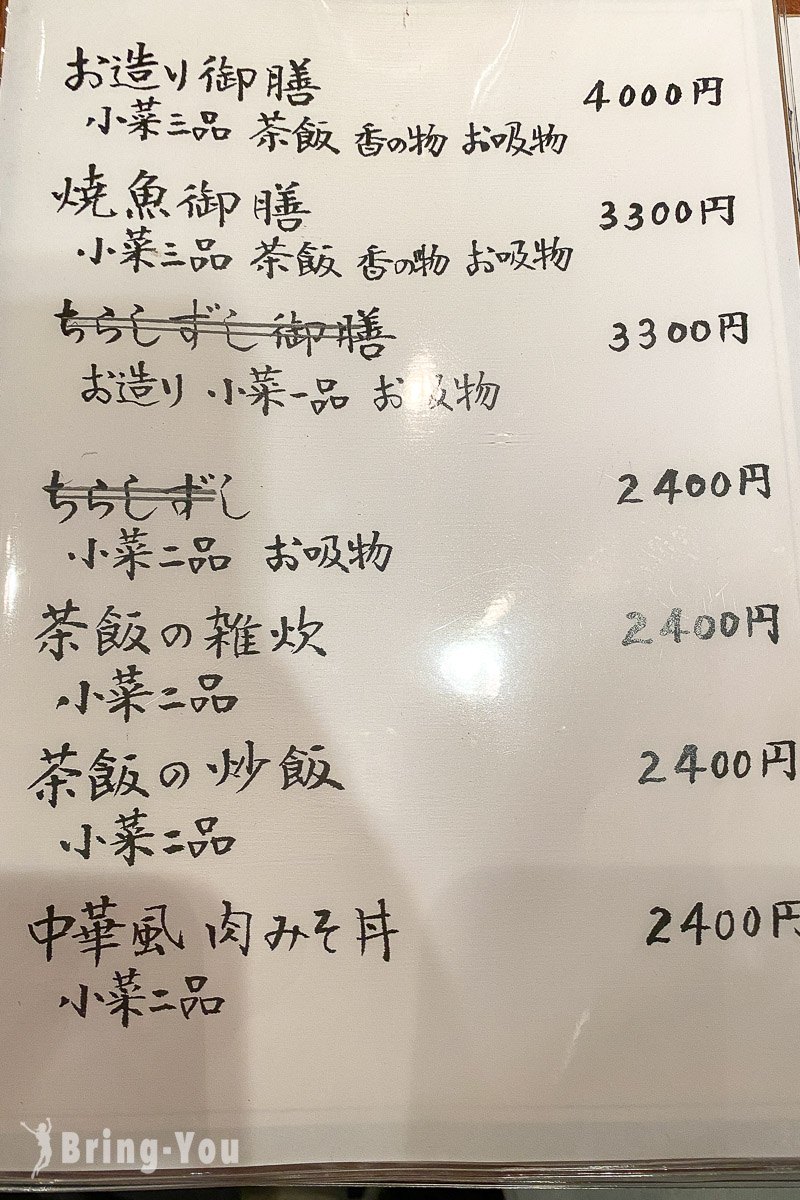 お造り御膳 4000円
小菜三品 茶飯 香の物 お吸物
焼魚御膳 3300円
小菜三品 茶飯 香の物 お吸物
ちらしずし御膳 3300円
お造り 小菜一品 お吸物
ちらしずし 2400円
小菜二品 お吸物
茶飯の雑炊 2400円
小菜二品
茶飯の炒飯 2400円
小菜二品
中華風 肉みそ丼 2400円
小菜二品
Bring-You